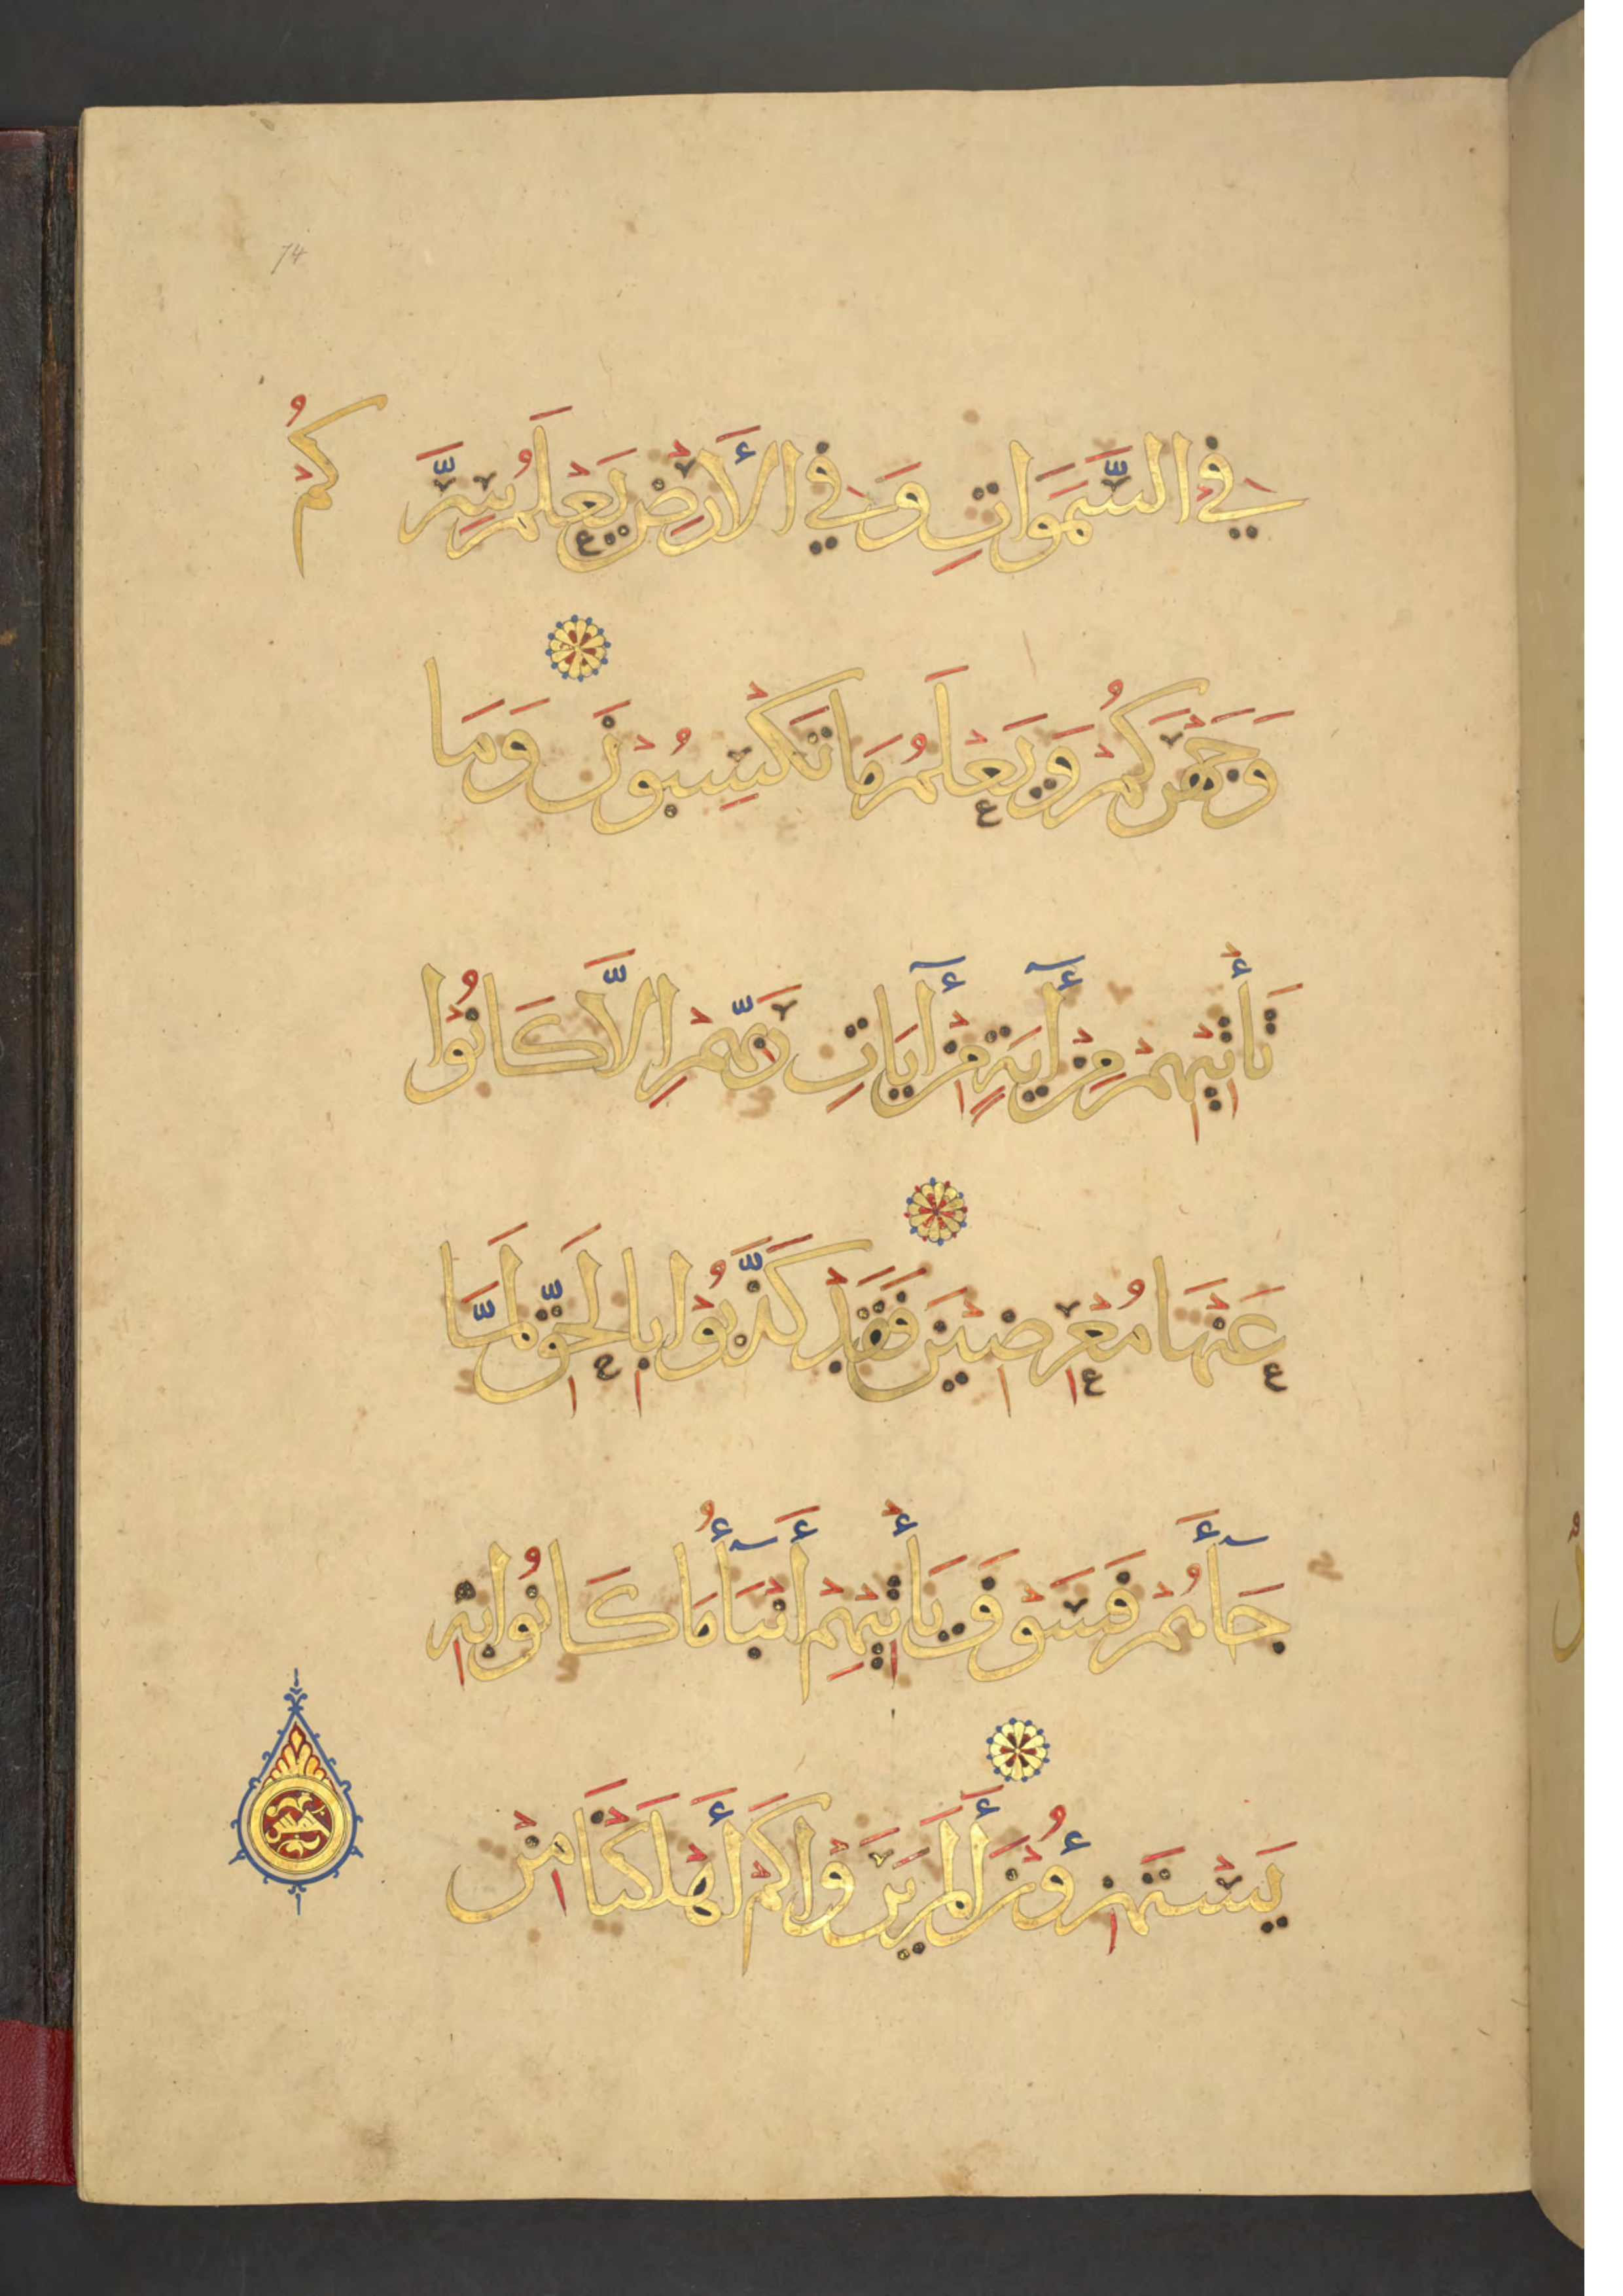 74
فِي السَّمَوَاتِ وَفِي الأَرْضِ يَعْلَمُ سِرَّكُمْ
وَجَهْرَكُمْ وَيَعْلَمُ مَا تَكْسِبُوْنَ وَمَا
تَأْتِيْهِمْ مِنْ أٓيَةٍ مِنْ أٓيَاتِ رَبِّهِمْ اِلَّا كَانُوْا
عَنْهَا مُعْرِضِيْنَ فَقَدْ كَذَّبُوْا بِالْحَقِّ لَمَّا
جَآءَهُمْ فَسَوْفَ يَأْتِيْهِمْ أَنْبَآؤُا مَا كَانُوا بِهِ
يَسْتَهْزِؤُنَ أَلَمْ يَرَوْا كَمْ أَهْلَكْنَا مِنْ